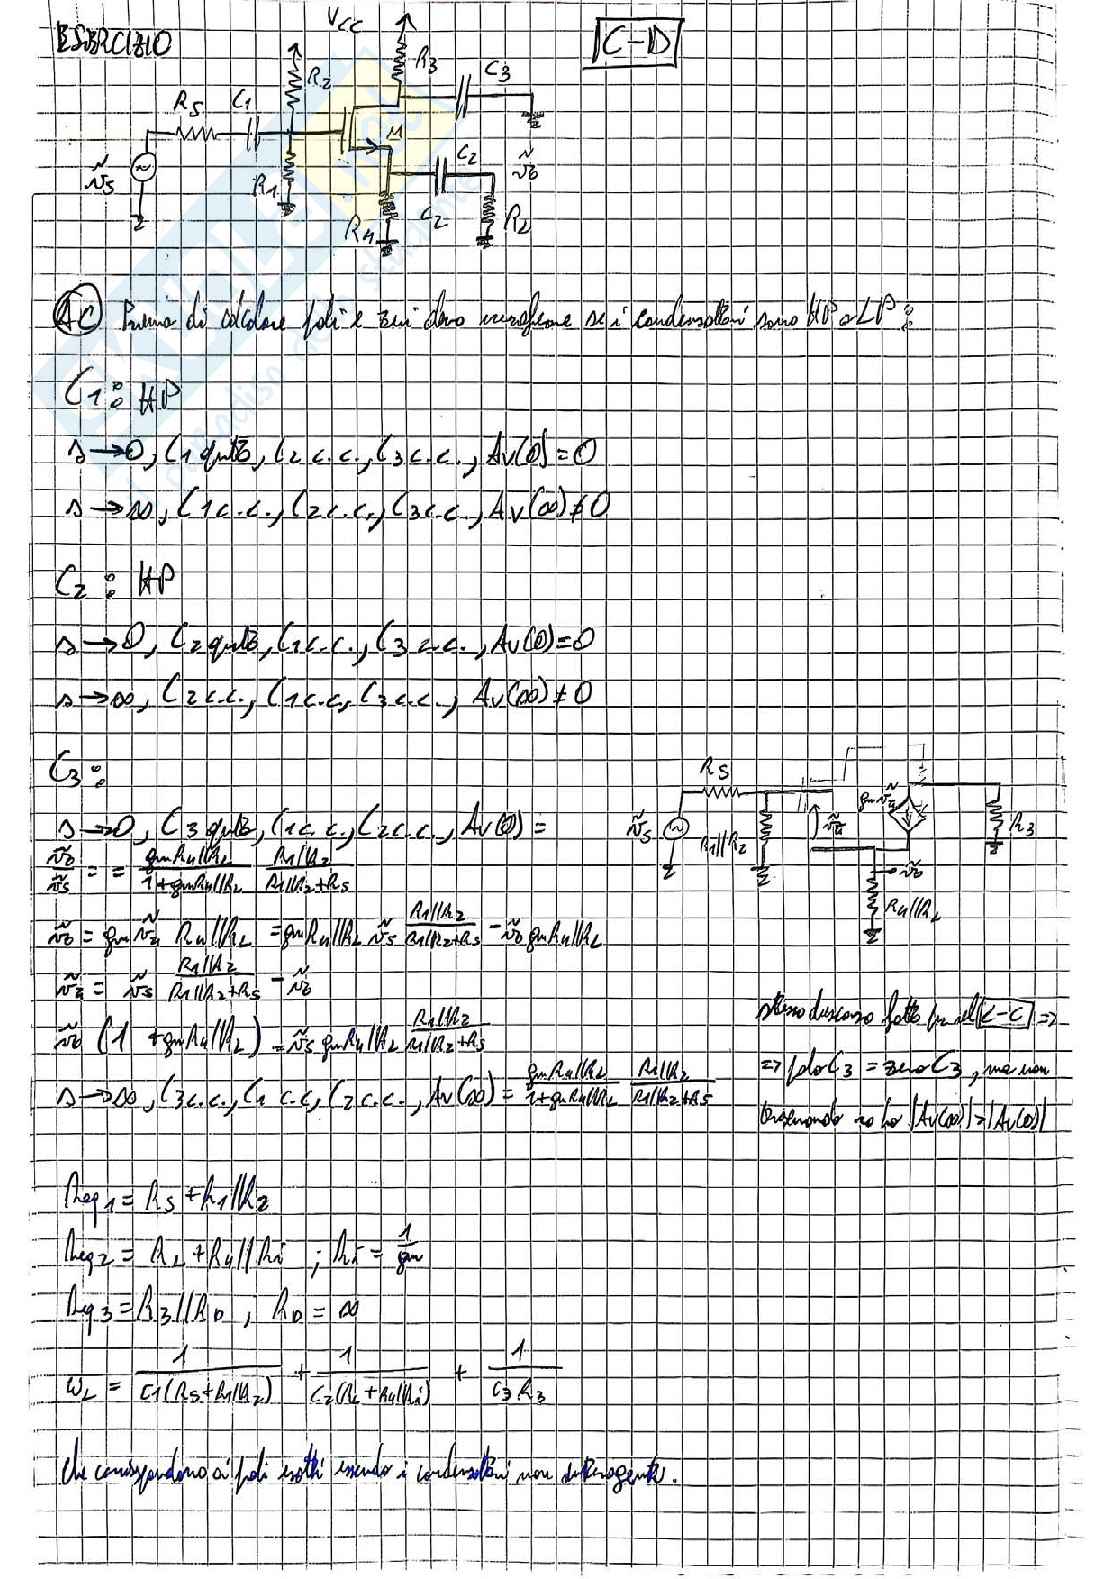 ESERCIZIO
C-D
Vcc
R2
R3
C3
RS
C1
M
ṽs
R1
C2
ṽo
R4
C2
R2
AC Prima di calcolare poli e zeri devo verificare se i condensatori sono HP o LP:
C1: HP
s→0, C1 aperto, C2 c.c., C3 c.c., Av(0)=0
s→∞, C1 c.c., C2 c.c., C3 c.c., Av(∞)≠0
C2: HP
s→0, C2 aperto, C1 c.c., C3 c.c., Av(0)=0
s→∞, C2 c.c., C1 c.c., C3 c.c., Av(∞)≠0
C3:
s→0, C3 aperto, C1 c.c., C2 c.c., Av(0)=
ṽo/ṽs = = gmR4//RL / 1+gmR4//RL R1//R2 / R1//R2+RS
ṽo = gm ṽπ R4//RL = gmR4//RL ṽs R1//R2 / R1//R2+RS - ṽo gmR4//RL
ṽπ = ṽs R1//R2 / R1//R2+RS - ṽo
ṽo (1+gmR4//RL) = ṽs gmR4//RL R1//R2 / R1//R2+RS
s→∞, C3 c.c., C1 c.c., C2 c.c., Av(∞) = gmR4//RL / 1+gmR4//RL R1//R2 / R1//R2+RS
RS
ṽs
R1//R2
ṽπ
gmṽπ
R3
ṽo
R4//RL
stesso discorso fatto per il C-C ⇒
⇒ polo C3 = zero C3, ma non
|Av(∞)|=|Av(0)|
Req1 = RS + R1//R2
Req2 = RL + R4//Ri ; Ri = 1/gm
Req3 = R3//RD , RD = ∞
ωL = 1 / C1(RS+R1//R2) + 1 / C2(RL+R4//Ri) + 1 / C3 R3
che corrispondono ai poli esatti essendo i condensatori non interagenti.